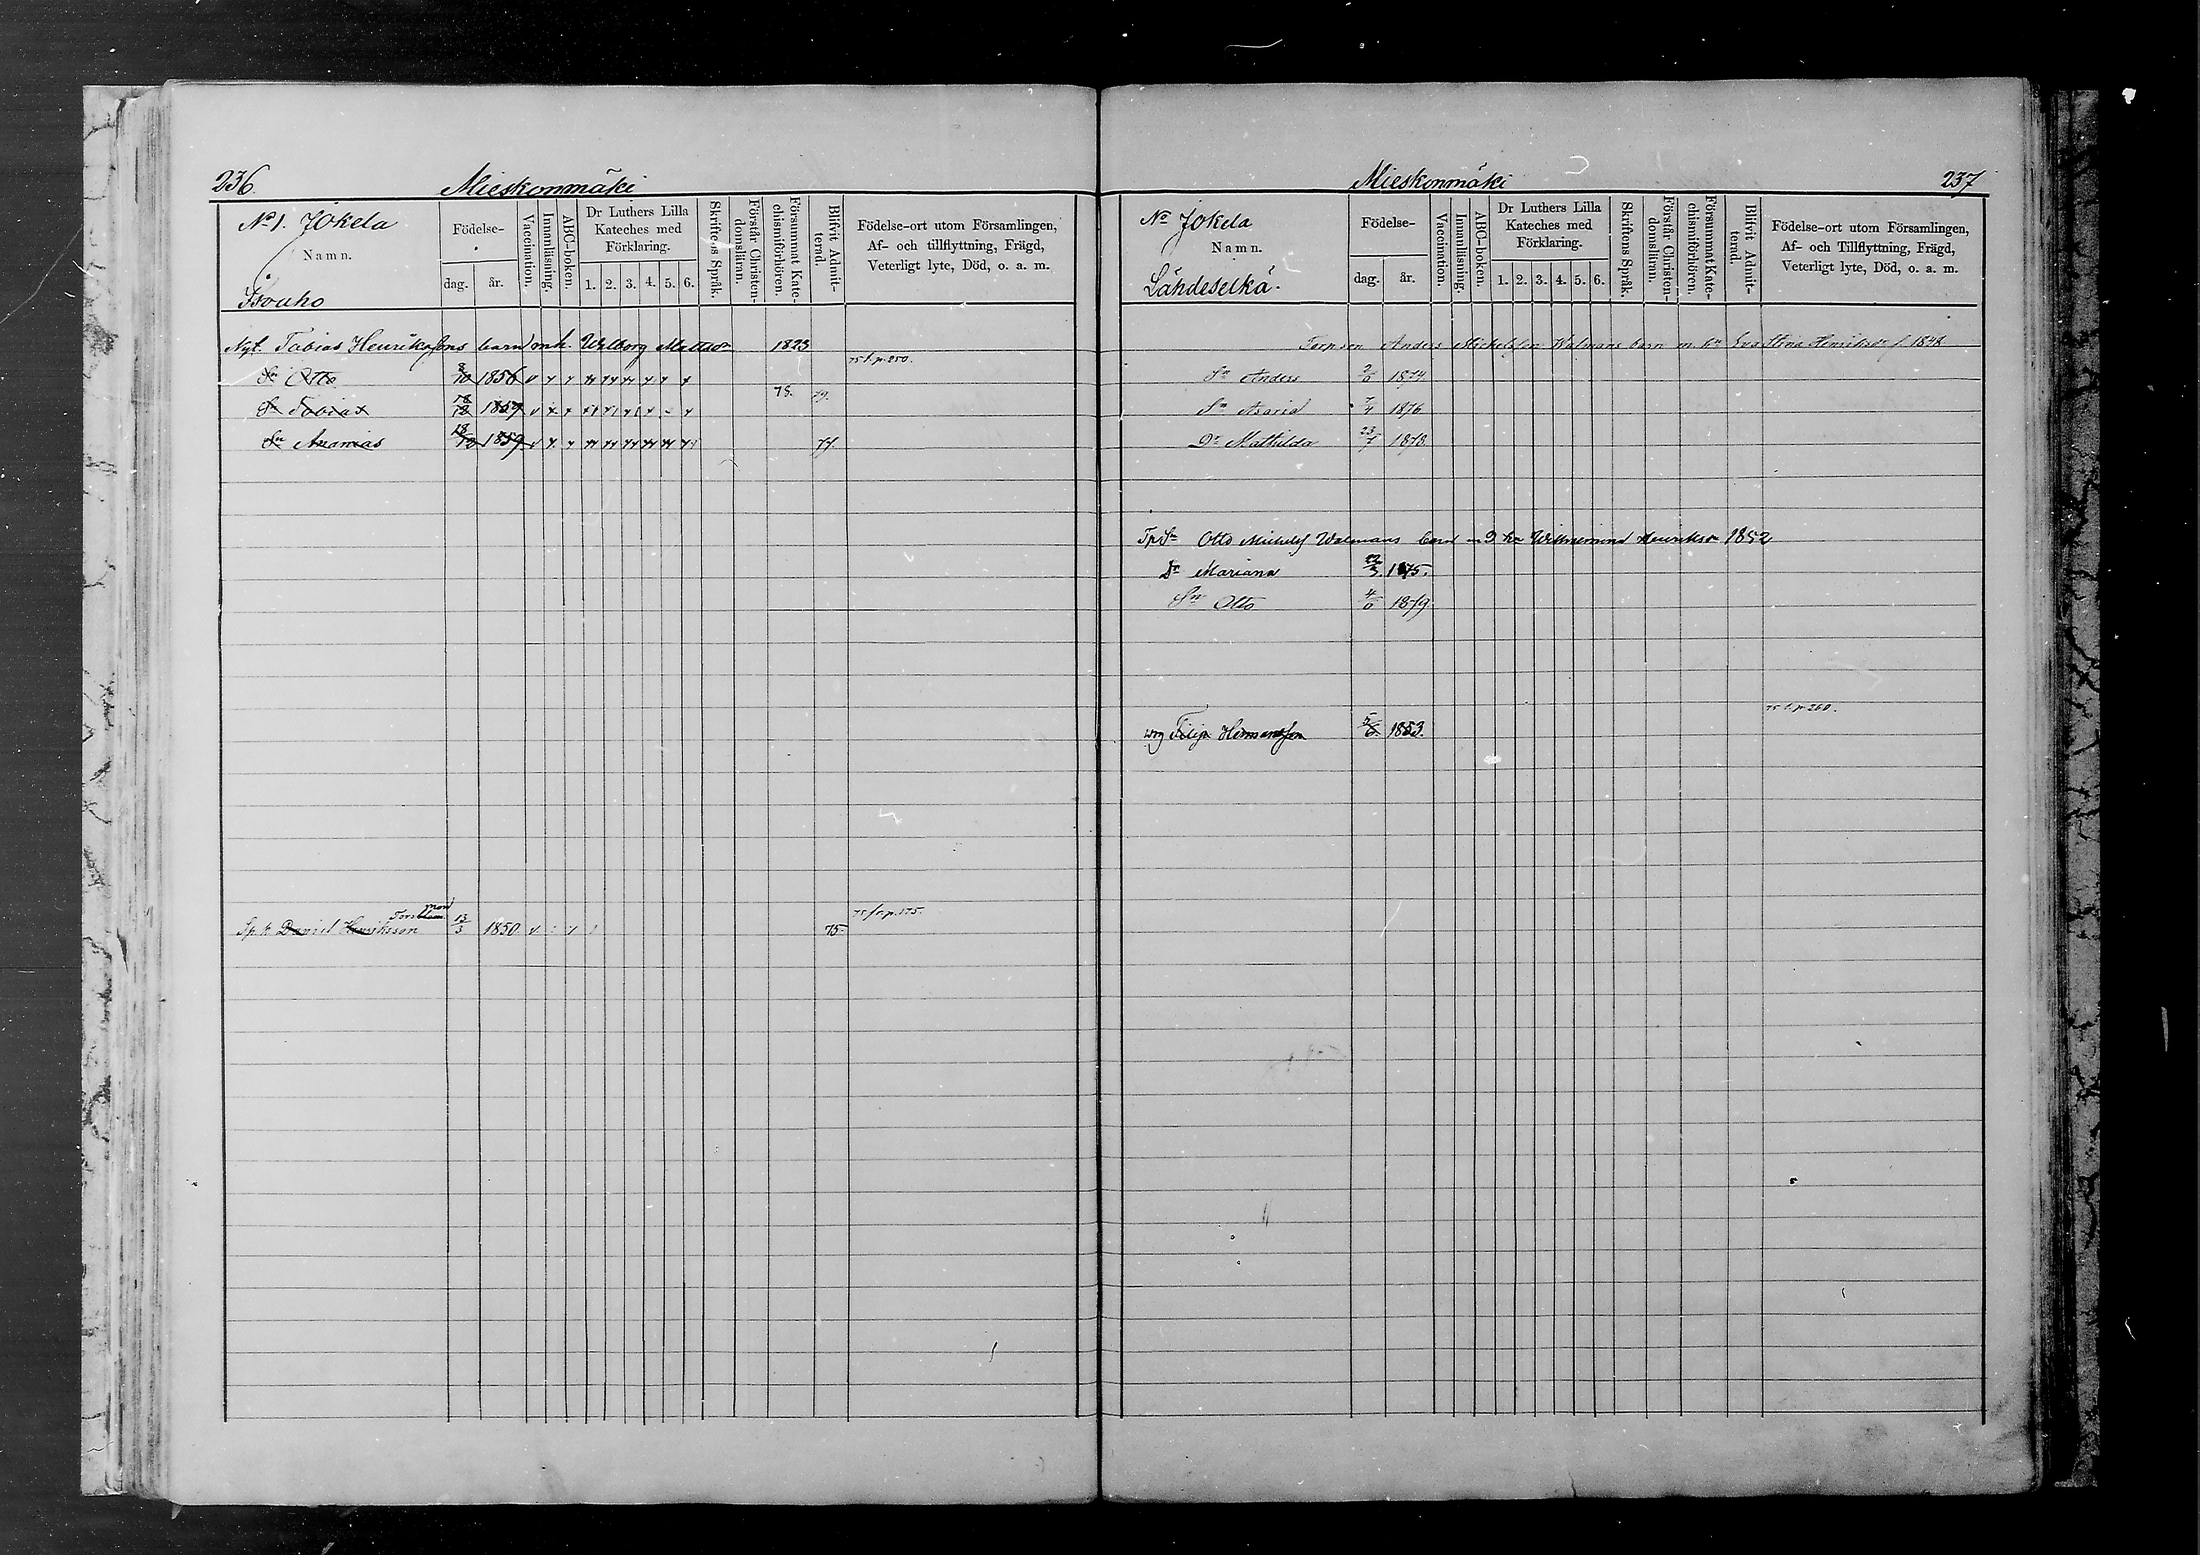 236. Mieskonmäki
No 1. Jokela
Namn.
Isouho
Födelse-
dag. år.
Vaccination.
Innanläsning.
ABC-boken.
Dr Luthers Lilla
Kateches med
Förklaring.
1. 2. 3. 4. 5. 6.
Skriftens Språk.
Förstår Christen-
domsllämn.
Försummat Kate-
chismiförhören.
Blifvit Admit-
terad.
Födelse-ort utom Församlingen,
Af- och tillflyttning, Frägd,
Veterligt lyte, Död, o. a. m.
Nyb. Tobias Henriksons barn m h. Walborg Mattsdr 1823
Sn Otto 8/10 1856 75 t. p. 250.
Sn Tobias 18/12 1857 78. 79.
Sn Ananias 18/10 1859 77.
man
Forsblom
Sp. k. Daniel Henriksson 13/3 1850 75 75 fr. p. 175.
Mieskonmäki 237
No Jokela
Namn.
Lähdeselkä.
Födelse-
dag. år.
Vaccination.
Innanläsning.
ABC-boken.
Dr Luthers Lilla
Kateches med
Förklaring.
1. 2. 3. 4. 5. 6.
Skriftens Språk.
Förstår Christen-
domsllämn.
Försummat Kate-
chismiförhören.
Blifvit Admit-
terad.
Födelse-ort utom Församlingen,
Af- och Tillflyttning, Frägd,
Veterligt lyte, Död, o. a. m.
Torp son Anders Michelsson Walmans barn m. hn Eva Stina Henriksdr f. 1848
Sn Anders 2/6 1874.
Sn Asarid 7/4 1876
Dr Mathilda 23/7 1878.
Tp Sn Otto Michels Walmans barn m Hn Wilhelmina Henriksdr 1852
Dr Mariana 22/3 1875.
Sn Otto 4/6 1879.
75 t. p. 260.
Filip Hermansson 5/6 1853.